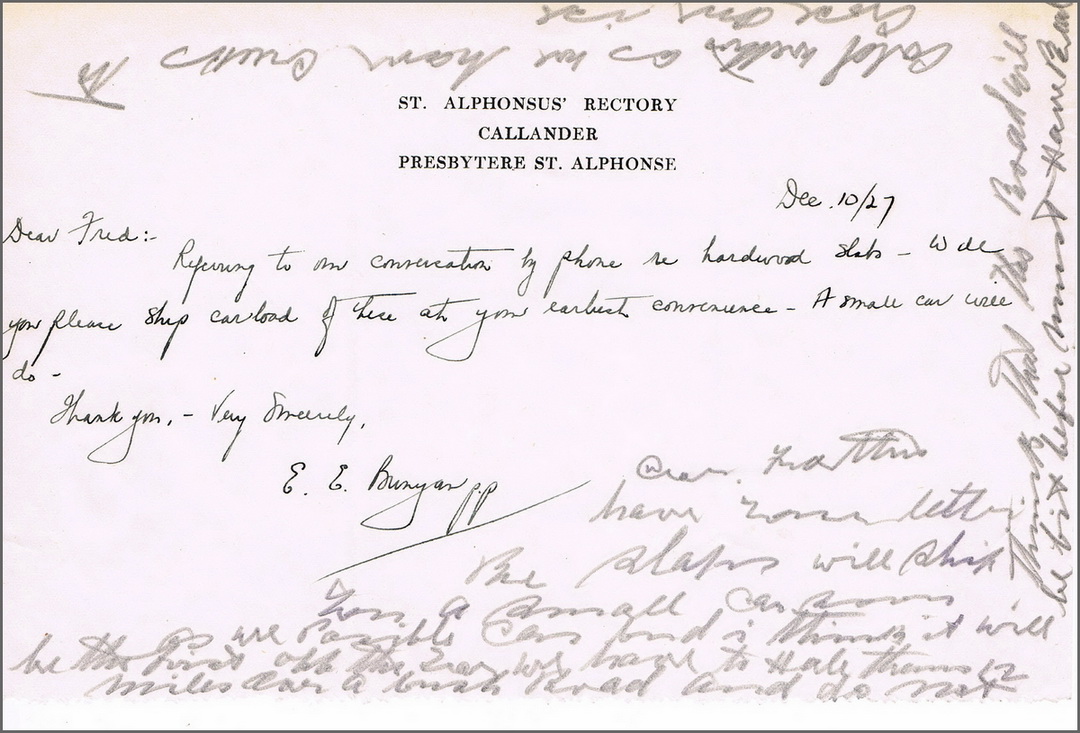 ST. ALPHONSUS' RECTORY
CALLANDER
PRESBYTERE ST. ALPHONSE
Dec. 10/27
Dear Fred:-
Referring to our conversation by phone re hardwood slabs - Will
you please ship carload of these at your earliest convenience - A small car will
do -
Thank you, - Very Sincerely,
E. E. Bunyan pp
Dear
have letter
Re slabs will ship
a small car soon
as we possible can and i think it will
be the first off the we have to them 12
miles over a bush Road and do not
Think that this Road will
be fit before must have
Cold as we have to